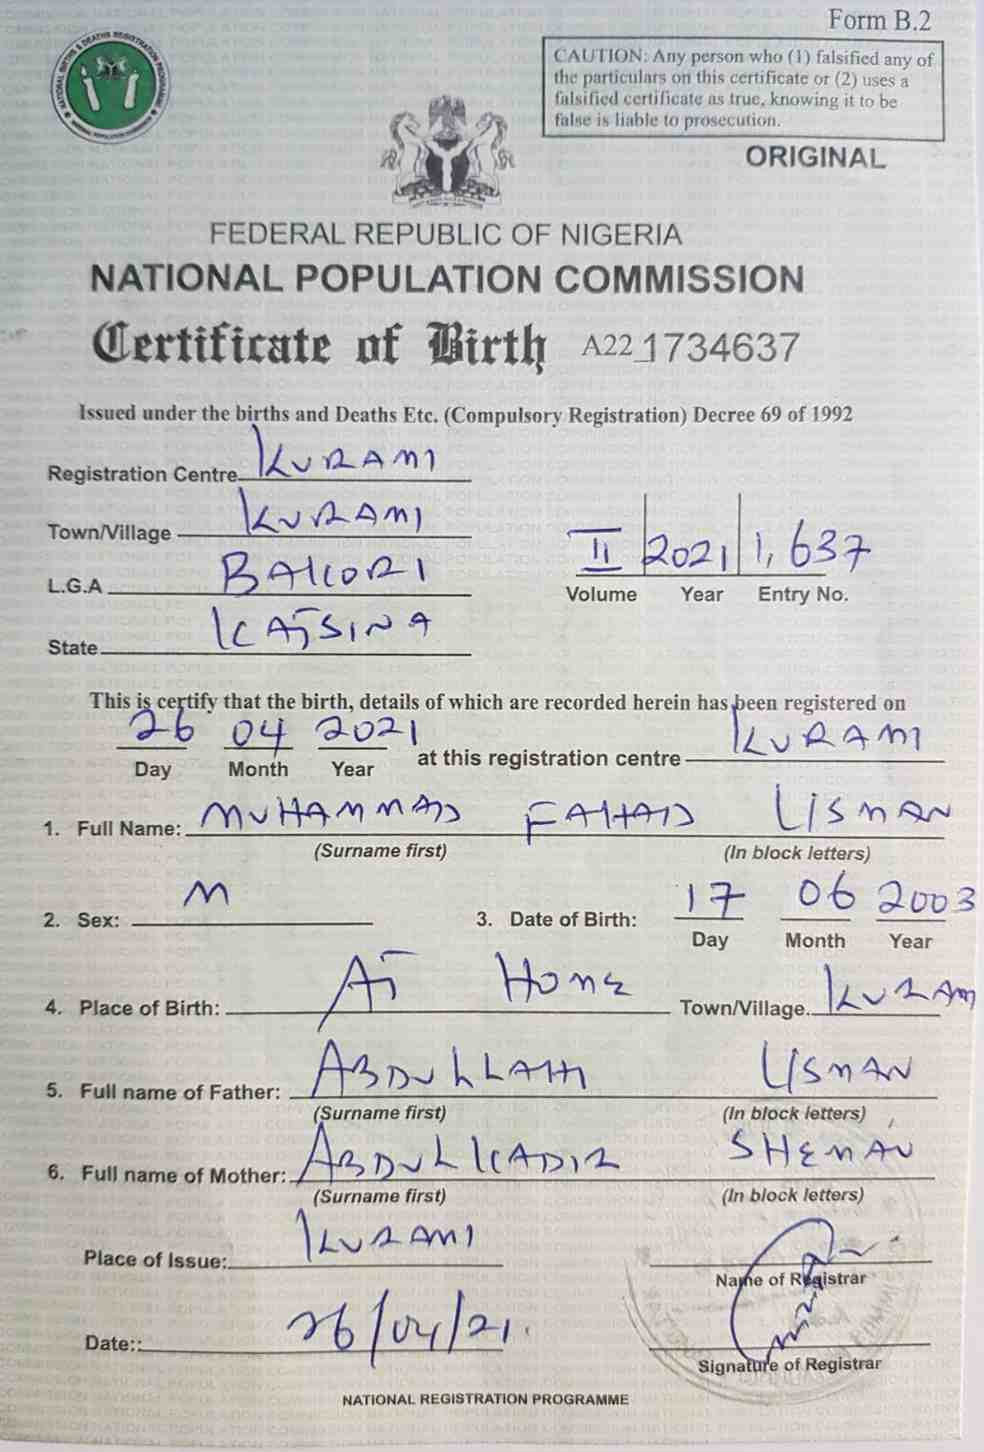 Form B.2
CAUTION: Any person who (1) falsified any of
the particulars on this certificate or (2) uses a
falsified certificate as true, knowing it to be
false is liable to prosecution.
ORIGINAL
FEDERAL REPUBLIC OF NIGERIA
NATIONAL POPULATION COMMISSION
Certificate of Birth A22 1734637
Issued under the births and Deaths Etc. (Compulsory Registration) Decree 69 of 1992
Registration Centre KURAMI
Town/Village KURAMI
L.G.A BAKORI
II 2021 1,637
Volume Year Entry No.
State KATSINA
This is certify that the birth, details of which are recorded herein has been registered on
26 04 2021 at this registration centre KURAMI
Day Month Year
1. Full Name: MUHAMMAD FAHAD USMAN
(Surname first) (In block letters)
2. Sex: M 3. Date of Birth: 17 06 2003
Day Month Year
4. Place of Birth: AT HOME Town/Village. KURAMI
5. Full name of Father: ABDULLAHI USMAN
(Surname first) (In block letters)
6. Full name of Mother: ABDULKADIR
(Surname first) (In block letters)
Place of Issue: KURAMI
Name of Registrar
Date:: 26/04/21.
Signature of Registrar
NATIONAL REGISTRATION PROGRAMME